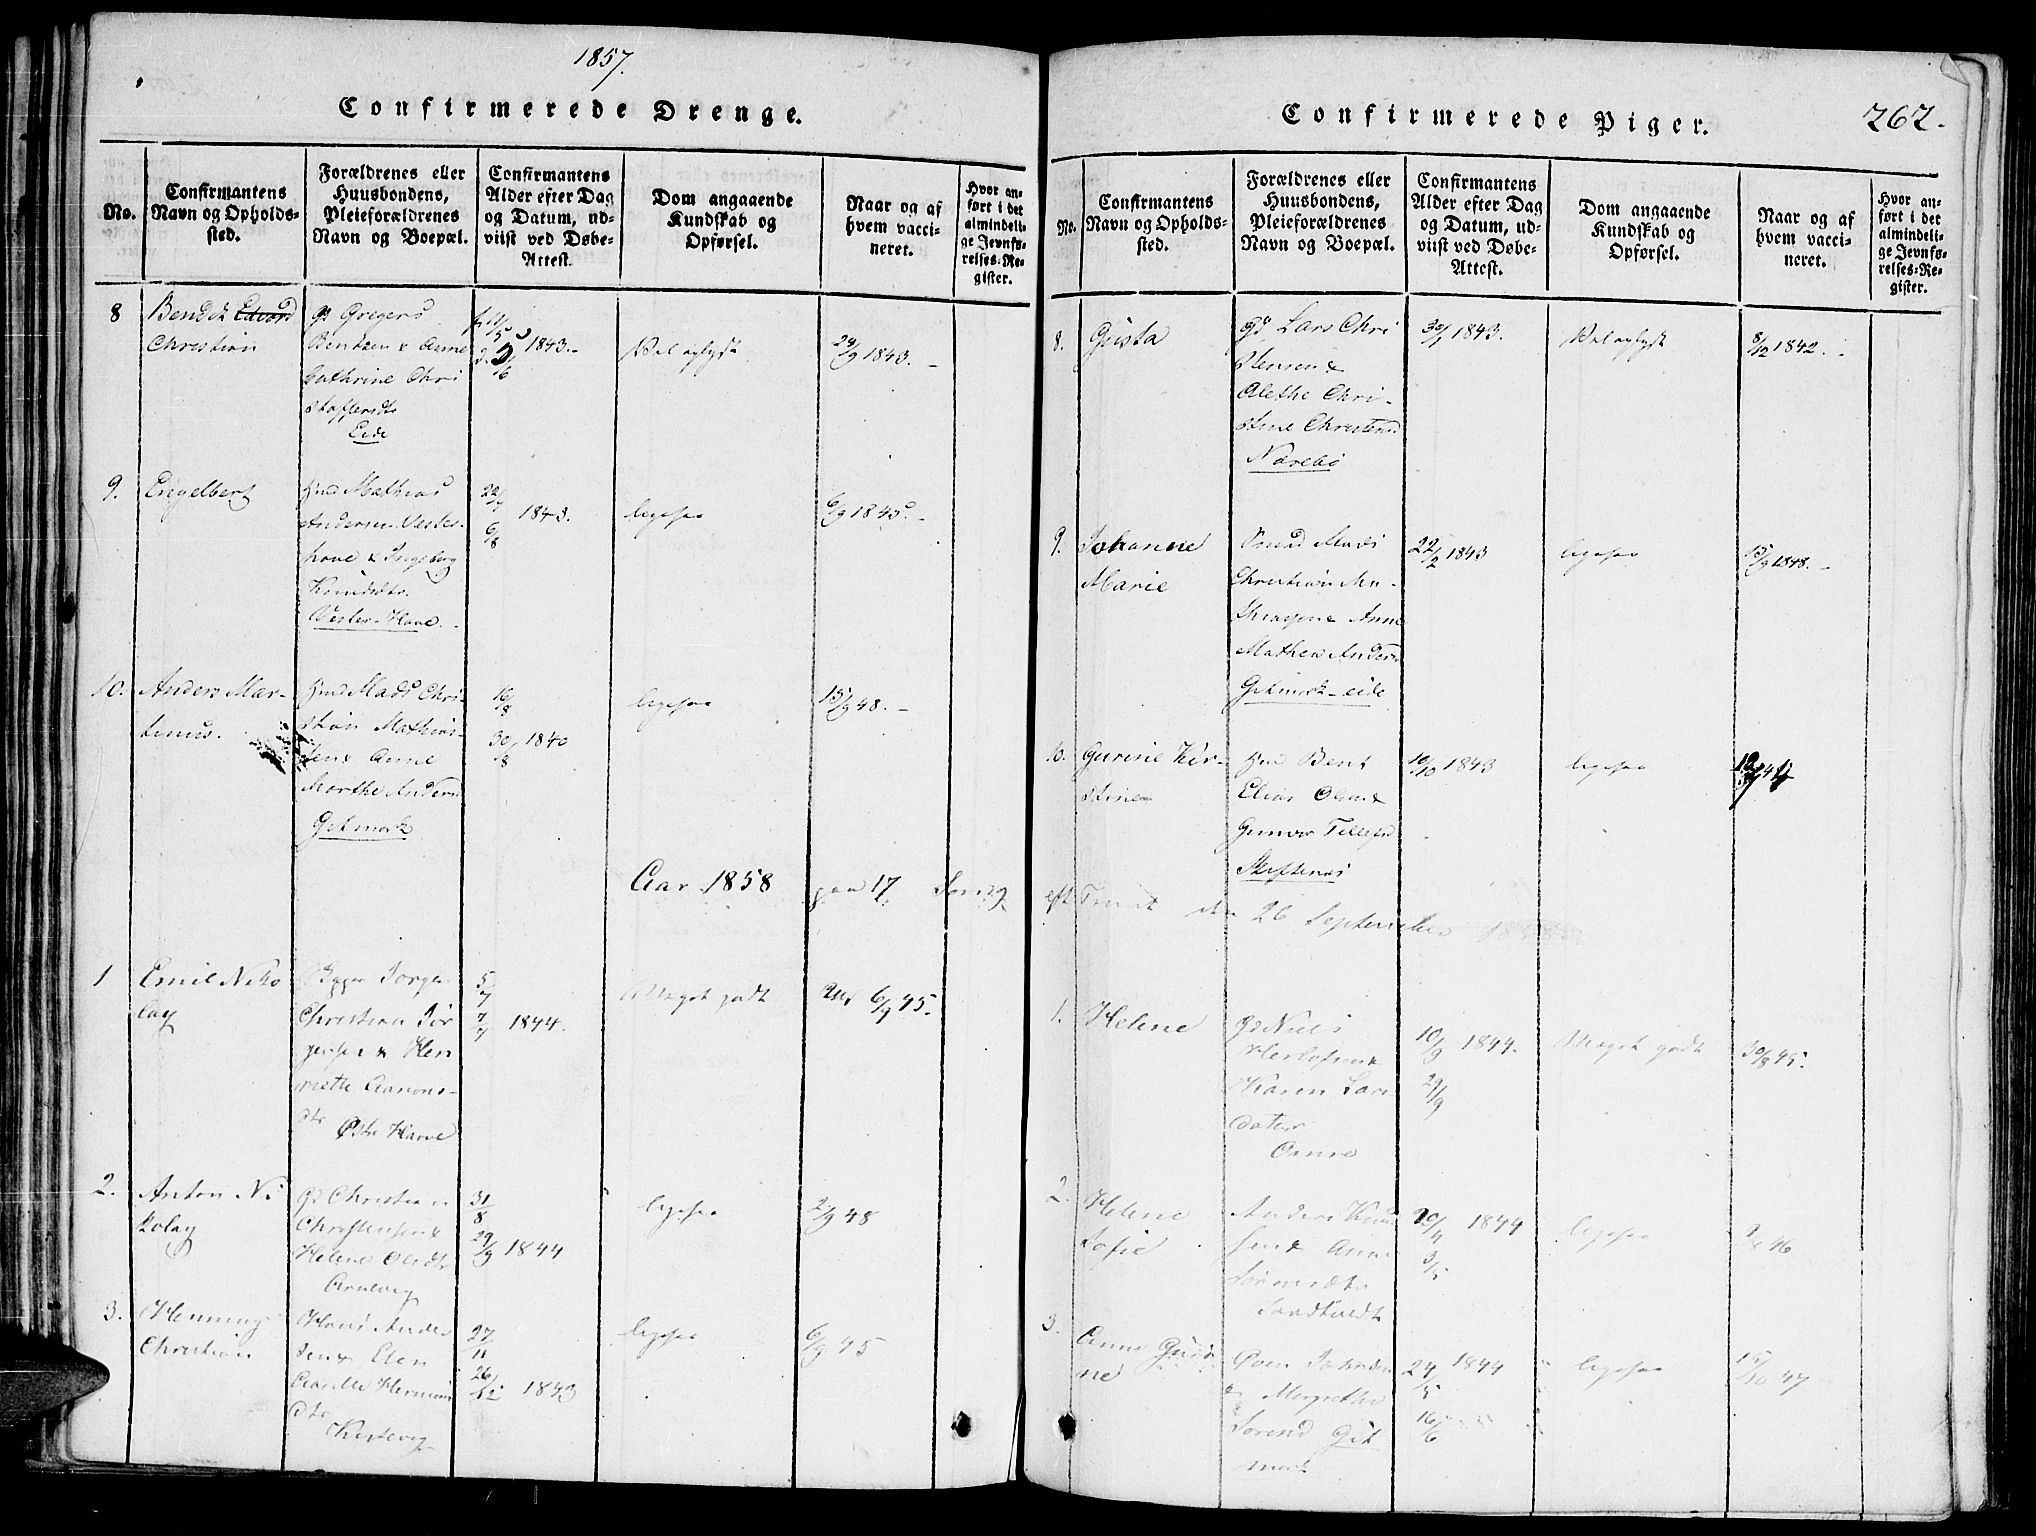 1857.
Confirmerede Drenge.
No.
Confirmantens
Navn og Opholds-
sted.
Forældrenes eller
Huusbondens,
Pleieforældrenes
Navn og Boepæl.
Confirmantens
Alder efter Dag
og Datum, ud-
viist ved Døbe-
Attest.
Dom angaaende
Kundskab og
Opførsel.
Naar og af
hvem vacci-
neret.
Hvor an-
ført i det
almindeli-
ge Jevnfø-
relses-Re-
gister.
8
Bendek Edvard
Christian
Gd Gregers
Bentzen & Anne
Cathrine Chri
stoffersdtr
Eide
1843.-
Vel oplyst
29/9 1843.-
9.
Engelbert
Hmd Mathias
Andersen Vester-
have & Ingeborg
Knudsdtr.
Vester-Have.
22/7
6/8
1843.
ligesaa
6/9 1845.-
10.
Anders Mar-
tinus.
Hmd Mads Chri-
stian Mathias-
sen & Anne
Marthe Anders
Gitmark
16/8
30/8
1840
ligesaa
15/9 48.-
Aar 1858 paa 17. Søndg
1
Emil Niko
lay
Jørgen
Christian Jør
gensen & Hen
riette Aarons-
dtr
Østre Havve
5/7
7/7
1844.
Meget godt
6/9 45.
2.
Anton Ni
kolay
Gd Christian
Christensen &
Helene Olsdtr
Arnevig
31/8
29/9
1844
ligesaa
2/9 48
3.
Henning
Christian
Hans Ander
sen & Elen
Hermans
dtr
Kestevig
27/11
26/12
1843
ligesaa
6/9 45
Confirmerede Piger.
262.
No.
Confirmantens
Navn og Opholds-
sted.
Forældrenes eller
Huusbondens,
Pleieforældrenes
Navn og Boepæl.
Confirmantens
Alder efter Dag
og Datum, ud-
viist ved Døbe-
Attest.
Dom angaaende
Kundskab og
Opførsel.
Naar og af
hvem vacci-
neret.
Hvor an-
ført i det
almindeli-
ge Jevnfø-
relses-Re-
gister.
8.
Gusta
Gd Lars Chri
stensen &
Alethe Chri-
stine Christensd
Narebø
30/1 1843.
Vel oplyst
8/12 1842.-
9.
Johanne
Marie
Mads
Christian Ma-
thiasen & Anne
Mathea Anders
Gitmark-eide
22/2 1843
ligesaa
15/9 1848.-
10.
Gurine Kir-
stine
Hmd Bent
Elias Olsen &
Gunvor Tellefsd
Skiftenes
10/10 1843
ligesaa
eft Trinit den 26 September
1.
Helene
Gd Niels
Herlofsen &
Karen Lars
datter
Omre
10/9 1844.
29/9
Meget godt
30/8 45.
2.
Helene
Sofie
Anders Knud
sen & Anne
Sørensdtr
Sandtvedt
20/4 1844
3/5
ligesaa
46
3.
Anne Guri
ne
Øven
& Margrethe
Sørensd Git
mark
24/5 1844
16/6
ligesaa
15/10 47